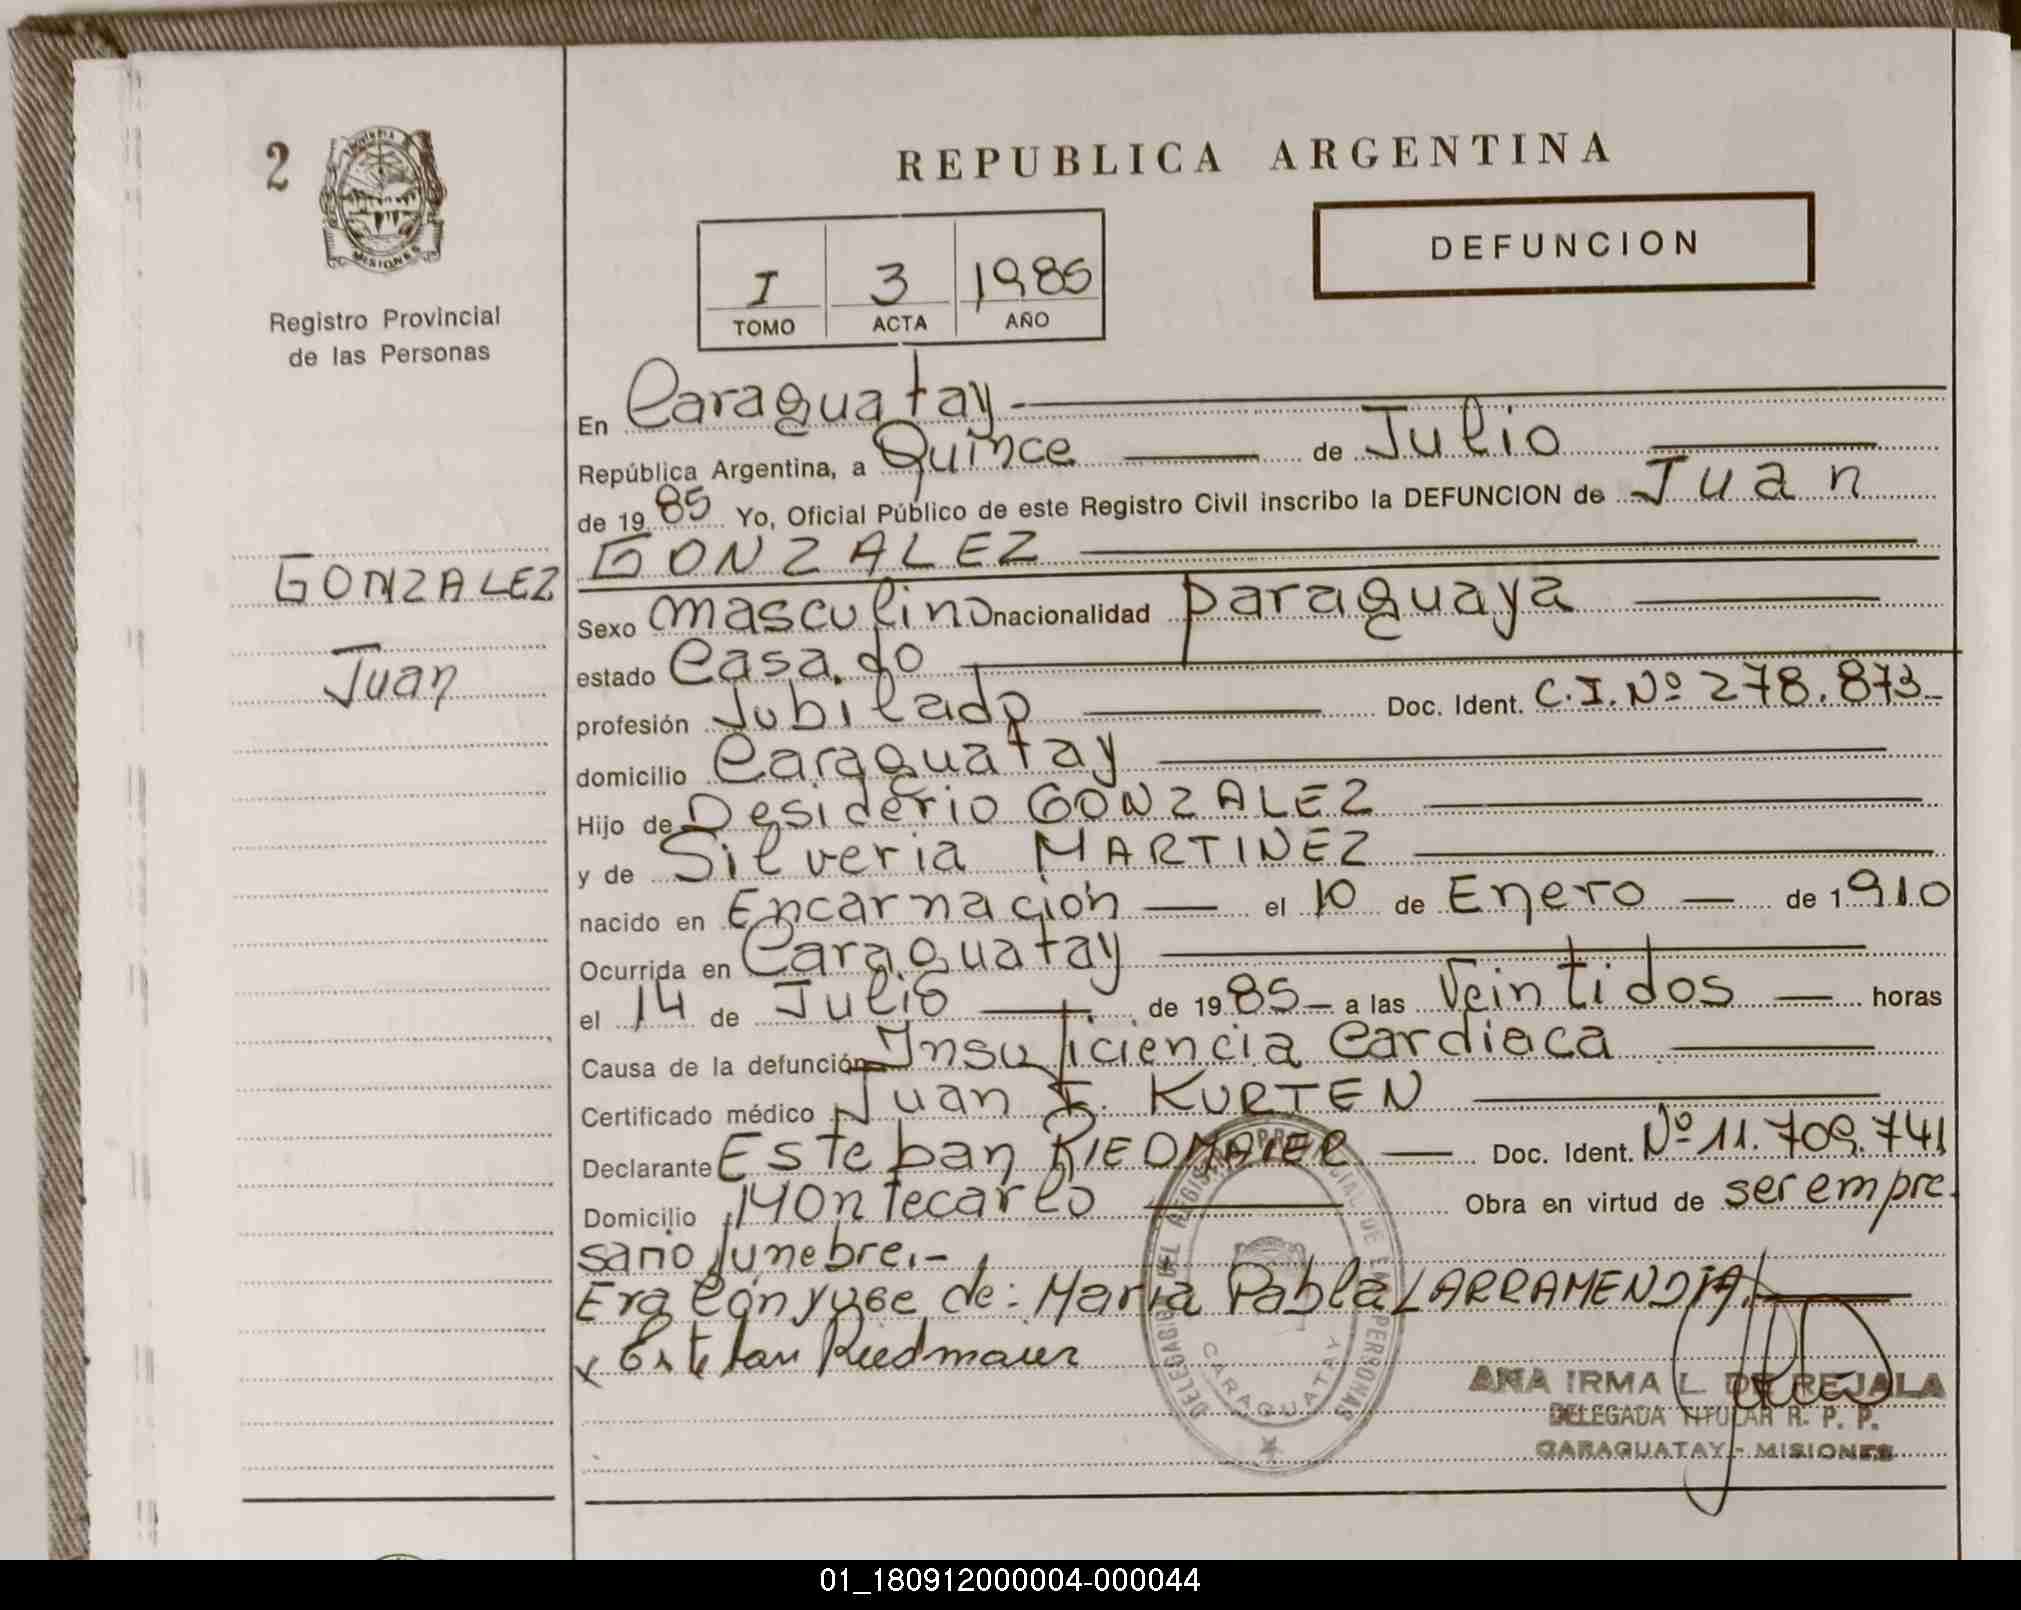 2
REPUBLICA ARGENTINA
DEFUNCION
MISIONES
Registro Provincial
de las Personas
I 3 1985
TOMO ACTA AÑO
En Caraguatay
República Argentina, a Quince de Julio
de 19 85 Yo, Oficial Público de este Registro Civil inscribo la DEFUNCION de Juan
GONZALEZ
GONZALEZ
Juan
Sexo masculino nacionalidad paraguaya
estado Casado
profesión Jubilado Doc. Ident. C.I. Nº 278.873
domicilio Caraguatay
Hijo de Desiderio GONZALEZ
y de Silveria MARTINEZ
nacido en Encarnación el 10 de Enero de 1910
Ocurrida en Caraguatay
el 14 de Julio de 1985 a las Veintidos horas
Causa de la defunción Insuficiencia Cardiaca
Certificado médico Juan F. KURTEN
Declarante Esteban RIEDMAIER Doc. Ident. Nº 11.709.741
Domicilio Montecarlo Obra en virtud de ser empre
sario funebre.-
Era Cónyuge de: Maria Pabla LARRAMENDIA.
x Esteban Riedmaier
DELEGACION DEL REGISTRO PROVINCIAL DE LAS PERSONAS
CARAGUATAY
ANA IRMA L. DE REJALA
DELEGADA TITULAR R. P. P.
CARAGUATAY - MISIONES
01_180912000004-000044